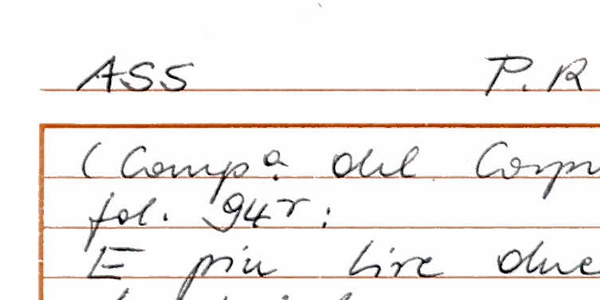 ASS P.R
(Compª. del Corpu
fol. 94r:
E più lire due